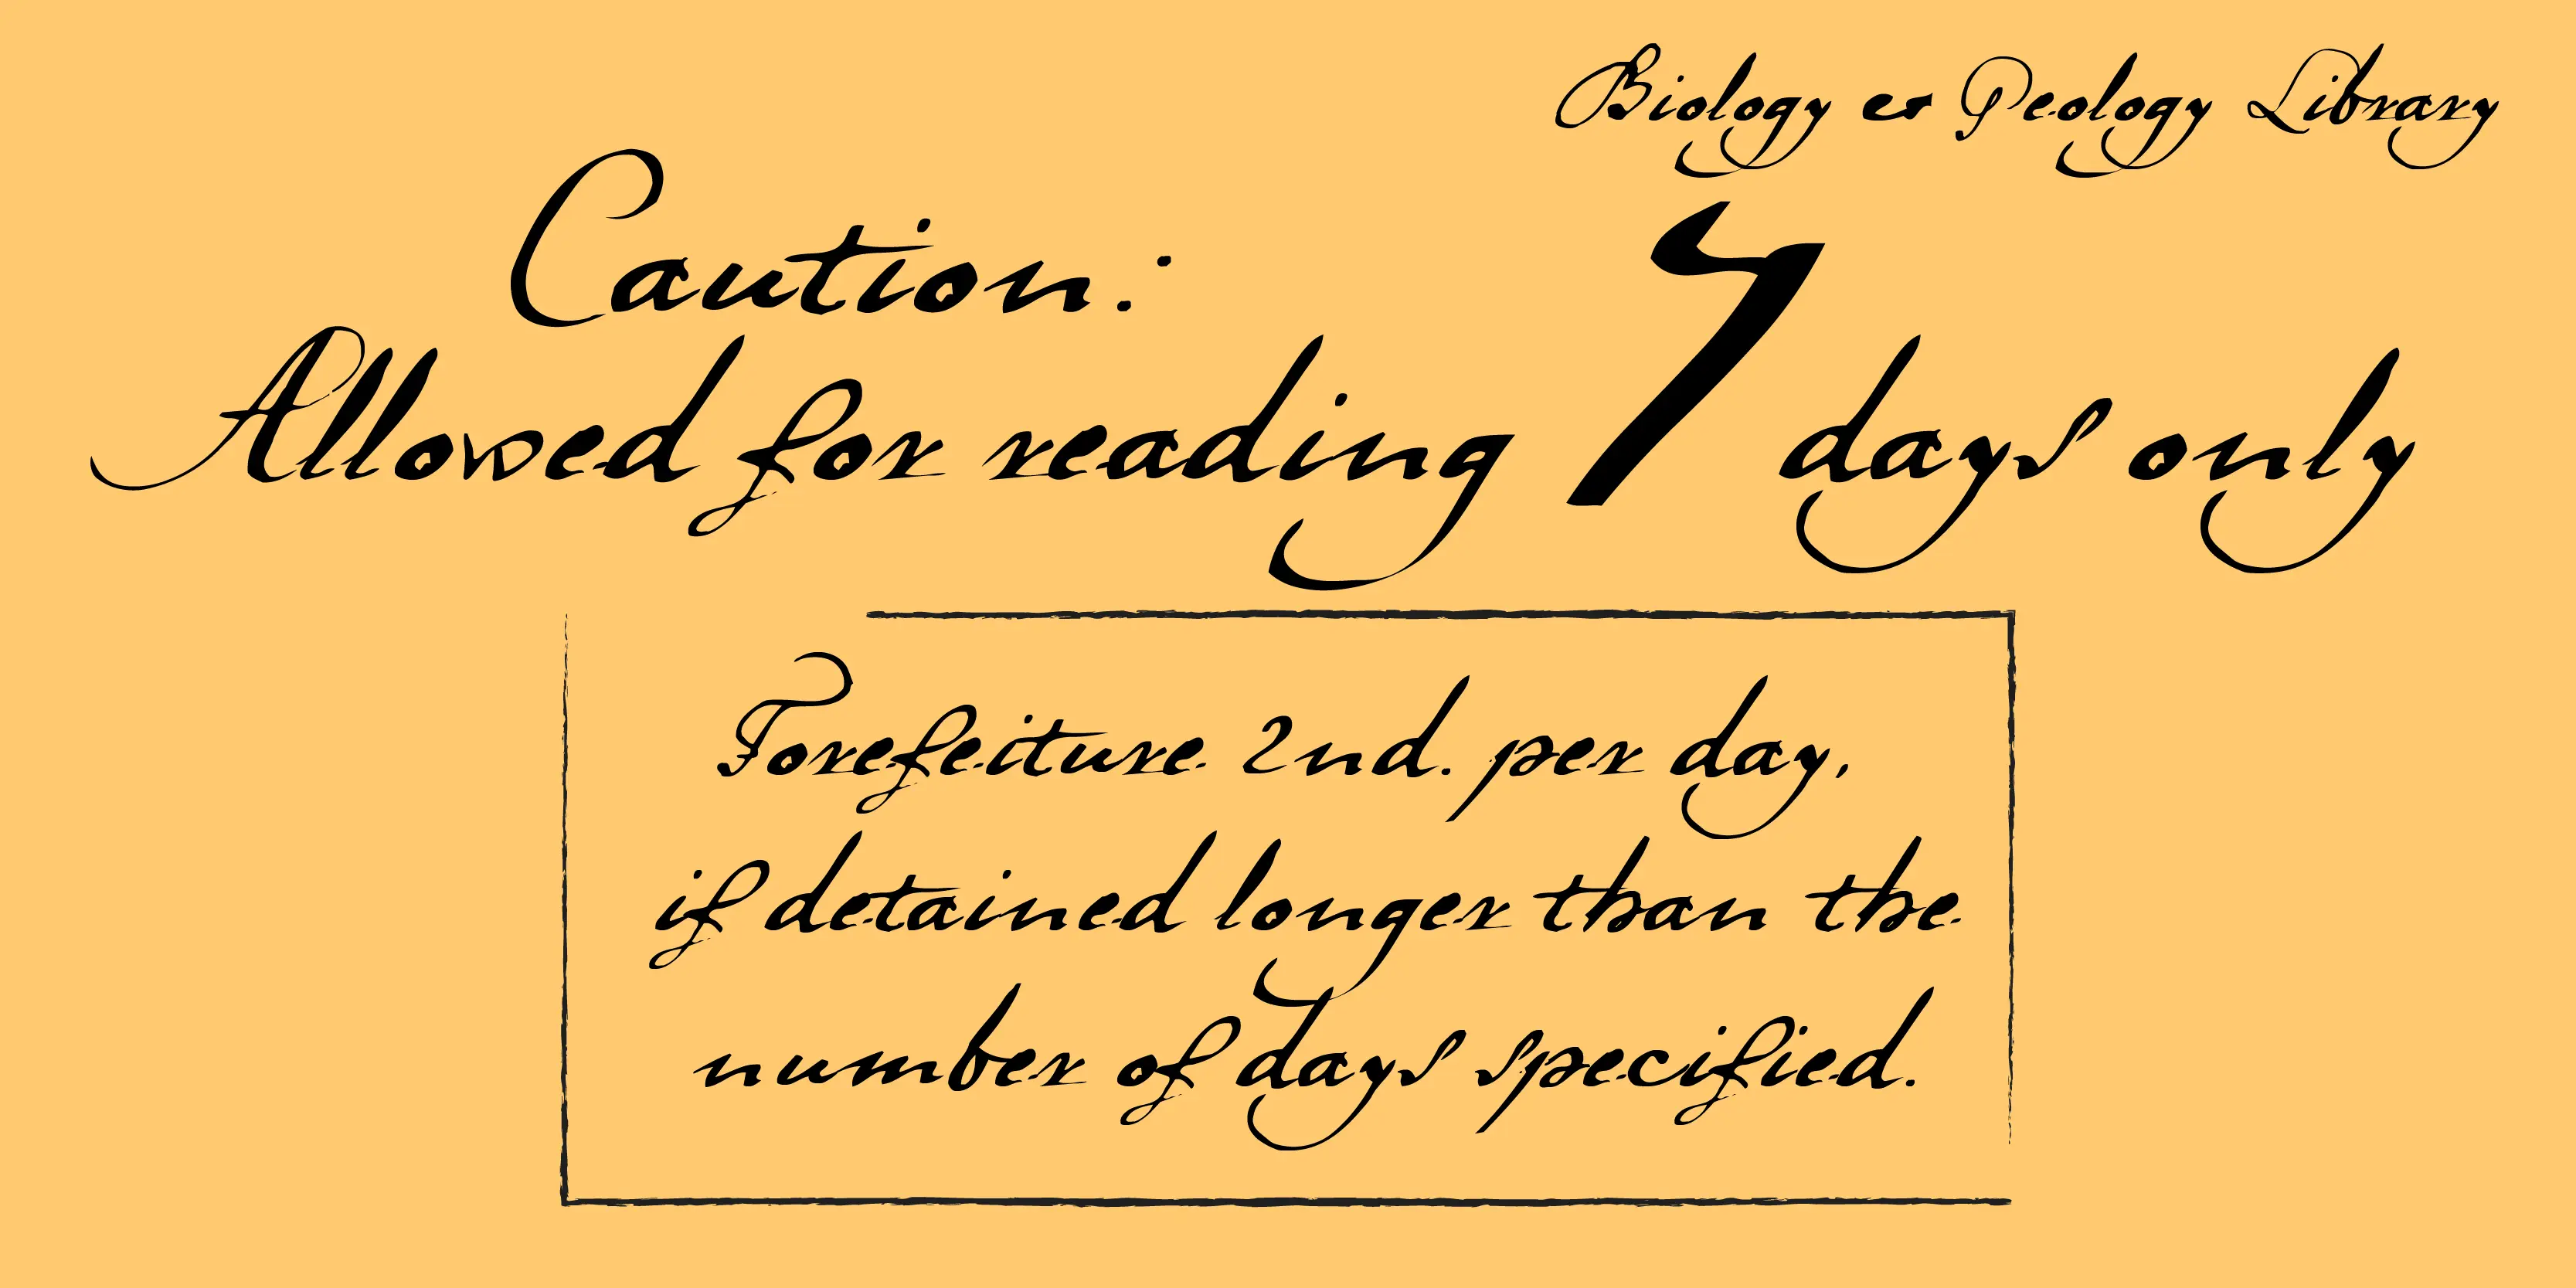 Biology & Geology Library
Caution:
Allowed for reading 7 days only
Forefeiture 2nd. per day,
if detained longer than the
number of days specified.